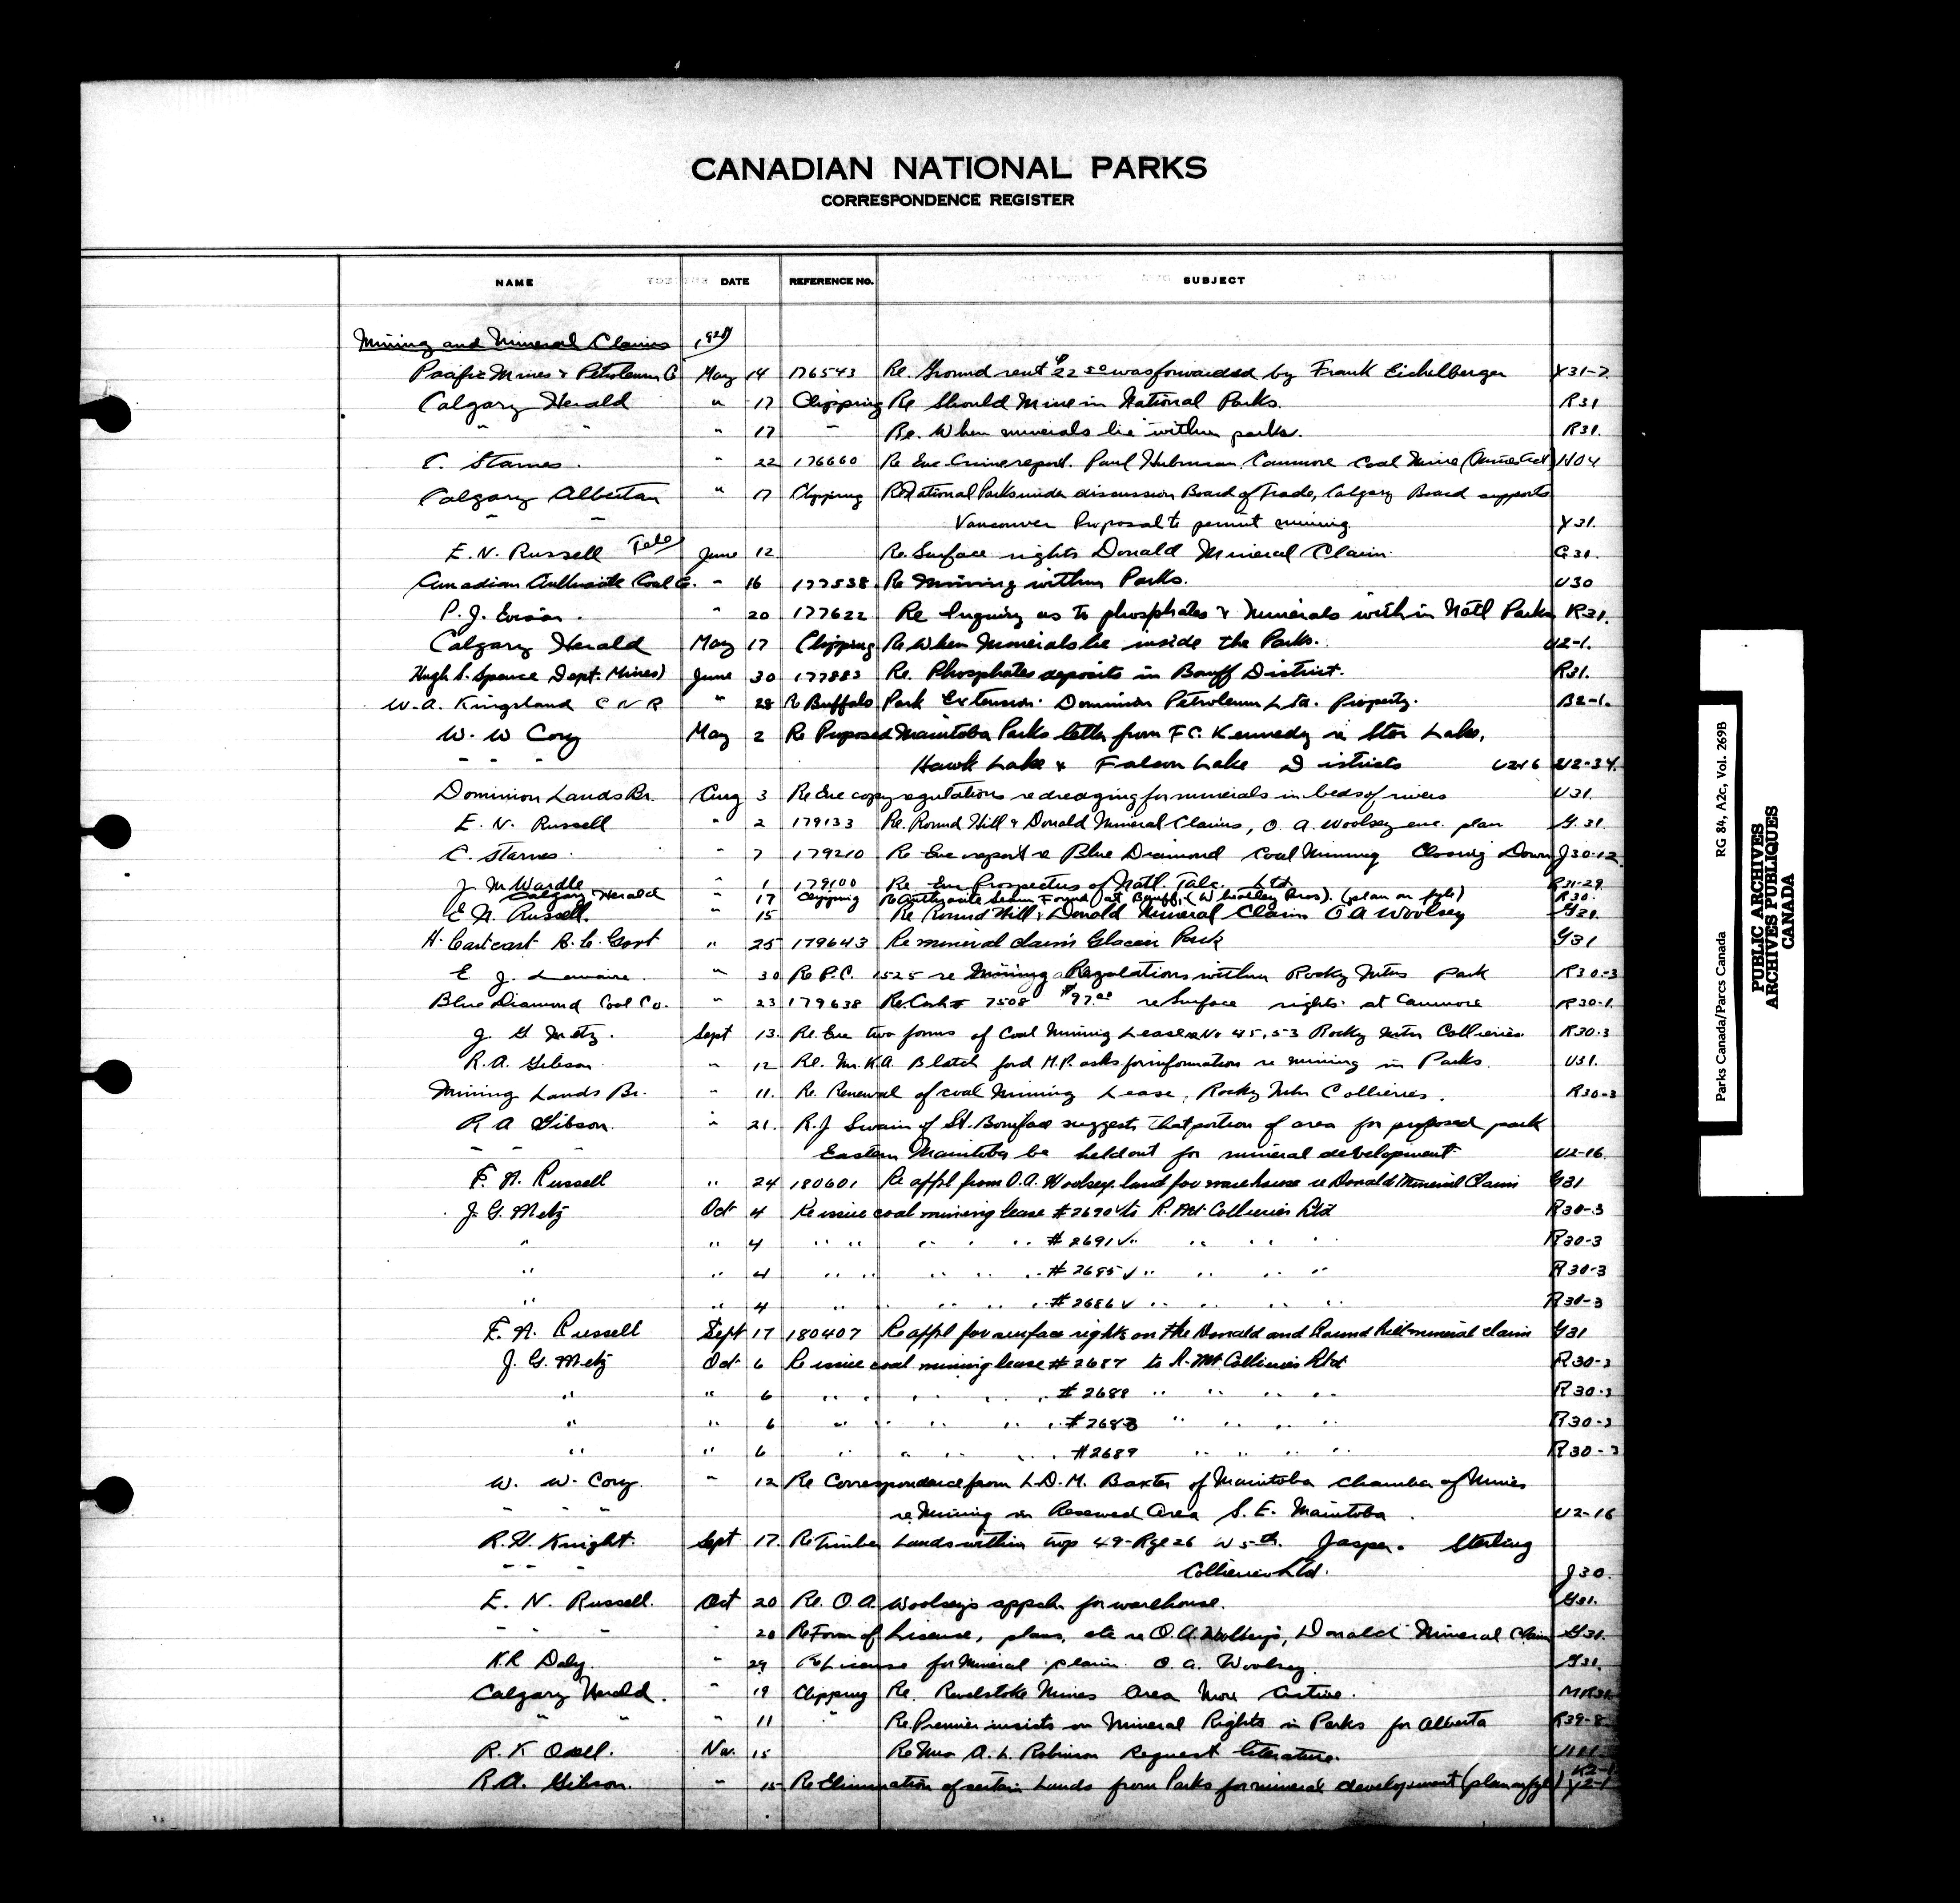 CANADIAN NATIONAL PARKS
CORRESPONDENCE REGISTER
NAME DATE REFERENCE No. SUBJECT
Mining and Mineral Claims 1928
Pacific Mines & Petroleum Co May 14 176543 Re. Ground rent $22 50 was forwarded by Frank Eichelberger Y31-2
Calgary Herald " 17 Clipping Re Should Mine in National Parks. R31
" " " 17 " Re. When minerals lie within parks. R31.
C. Starnes. " 22 176660 Re Enc Crime report. Paul Hubman, Canmore Coal Mine
Calgary Albertan " 17 Clipping Re National Parks under discussion Board of Trade, Calgary Board supports
" " Vancouver Proposal to permit mining Y31.
E. N. Russell Tele June 12 Re. Surface rights Donald Mineral Claim. G31.
Canadian Anthracite Coal Co. " 16 177538 Re Mining within Parks. U30
P. J. " 20 177622 Re Inquiry as to phosphates & minerals within Natl Parks R31.
Calgary Herald May 17 Clipping Re When Minerals lie inside the Parks. U2-1.
Hugh S. Spence (Dept. Mines) June 30 177883 Re. Phosphates deposits in Banff District. R31.
W. A. Kingsland C N R " 28 Re Buffalo Park Extension. Dominion Petroleum Ltd. Property. B2-1.
W. W Cory May 2 Re Proposed Manitoba Parks letter from F C. Kennedy re Star Lake,
" " " Hawk Lake & Falcon Lake Districts U216 U2-34.
Dominion Lands Br. Aug 3 Re Enc copy regulations re dredging for minerals in beds of rivers U31.
E. N. Russell " 2 179133 Re. Round Hill & Donald Mineral Claims, O. A. Woolsey enc. plan G.31.
C. Starnes. " 7 179210 Re Enc report re Blue Diamond Coal Mining Closing Down J30-12
J. M Wardle " 1 179100 Re Enc Prospectus of Natl. Talc. Ltd. R31-29
Calgary Herald " 17 Clipping Re Anthracite Seam Found at Banff, (Wheatley Bros). (plan on fyle) R30.
E N. Russell. " 15 Re Round Hill & Donald Mineral Claim O A Woolsey G31.
H. Cathcart B. C. Govt " 25 179643 Re mineral claims Glacier Park G31
E J. Lemaire. " 30 Re P.C. 1525 re Mining Regulations within Rocky Mtns Park R30-3
Blue Diamond Coal Co. " 23 179638 Re. Cash # 7508 $97.00 re Surface rights at Canmore R30-1.
J. G Metz. Sept 13. Re. Enc two forms of Coal Mining Leases No 45, 53 Rocky Mtn Collieries R30-3
R. A. Gibson. " 12 Re. Mr. K.A. Blatchford M.P. asks for information re mining in Parks. U31.
Mining Lands Br. " 11. Re. Renewal of coal Mining Lease, Rocky Mtn Collieries. R30-3
R A Gibson. " 21. R. J Swain of St. Boniface suggests that portion of area for proposed park
" " " Eastern Manitoba be held out for mineral development U2-16.
E. N. Russell " 24 180601 Re appl from O. A. Woolsey. land for warehouse re Donald Mineral Claim G31
J. G. Metz Oct 4 Re issue coal mining lease # 2690 ✓ to R. Mt Collieries Ltd R30-3
" " 4 " " " " " # 2691 ✓ " " " " " R30-3
" " 4 " " " " " # 2685 ✓ " " " " " R30-3
" " 4 " " " " " # 2686 ✓ " " " " " R30-3
E. N. Russell Sept 17 180407 Re appl for surface rights on the Donald and Round hill mineral claim G31
J. G. Metz Oct 6 Re issue coal mining lease # 2687 to R. Mt. Collieries Ltd R30-3
" " 6 " " " " " # 2688 " " " " R30-3
" " 6 " " " " # 2683 " " " " R30-3
" " 6 " " " # 2689 " " " " R30-3
W. W. Cory. " 12 Re Correspondence from L. D. M. Baxter of Manitoba Chamber of Mines
" " " re Mining in Reserved Area S. E. Manitoba U2-16
R. H. Knight. Sept 17. Re Timber Lands within twp 49-Rge 26 W 5th. Jasper. Sterling
" " " Collieries Ltd. J30.
E. N. Russell. Oct 20 Re. O. A. Woolsey's appch. for warehouse. G31.
" " " " 20 Re Form of License, plans, etc re O. A. Woolsey's, Donald Mineral Claim G31.
K.R. Daly. " 29 Re License for Mineral claim. O. A. Woolsey. G31.
Calgary Herald. " 19 Clipping Re. Revelstoke Mines Area More Active. MR31
" " " 11 " Re Premier insists on Mineral Rights in Parks for Alberta R39-8
R. K Odell. Nov. 15 Re Miss A. L. Robinson Request literature.
R. A. Gibson. " 15 Re Elimination of certain Lands from Parks for mineral development (plan on fyle) K2-1 Y2-1
Parks Canada/Parcs Canada RG 84, A2c, Vol. 269B
PUBLIC ARCHIVES
ARCHIVES PUBLIQUES
CANADA